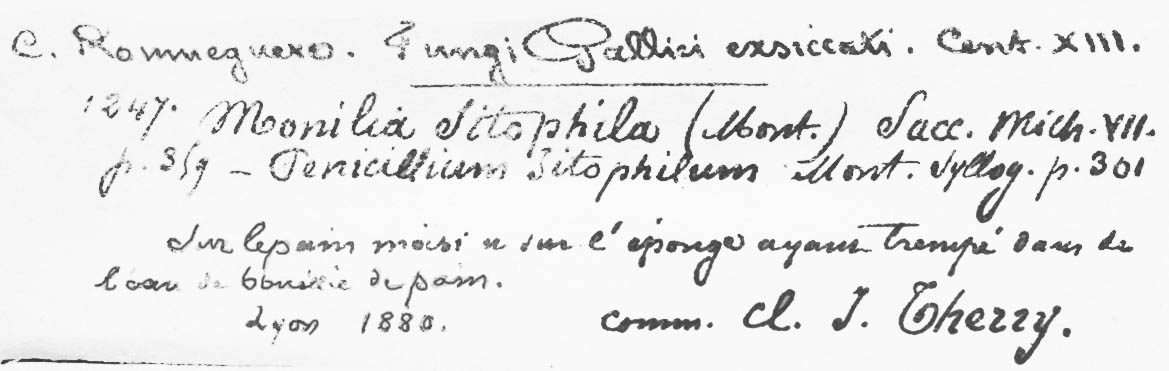 C. Roumeguere. Fungi Gallici exsiccati. Cent. XIII.
1247. Monilia Sitophila (Mont.) Sacc. Mich. VII.
p. 359 – Penicillium Sitophilum Mont. Syllog. p. 301
Sur le pain moisi et sur l'éponge ayant trempé dans de
l'eau de bouillie de pain.
Lyon 1880. comm. Cl. J. Therry.